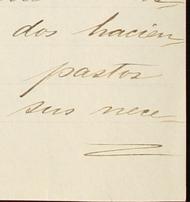 dos hacien-
pastos
sus nece-